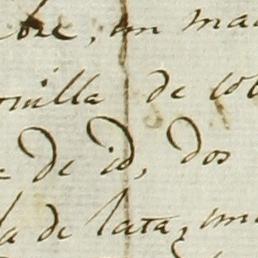 bre, un ma
milla de co
de id, dos
la de lata, un